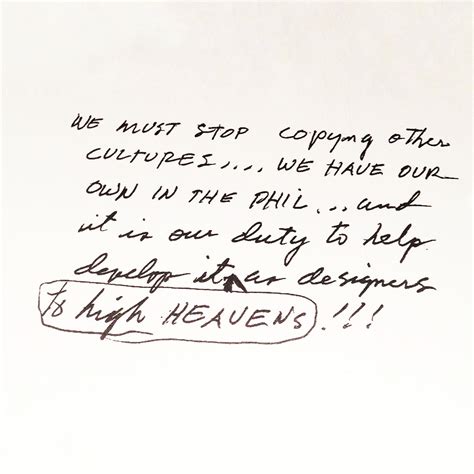 WE MUST STOP copying other
CULTURES.... WE HAVE OUR
OWN IN THE PHIL... and
it is our duty to help
develop it as designers
to high HEAVENS!!!